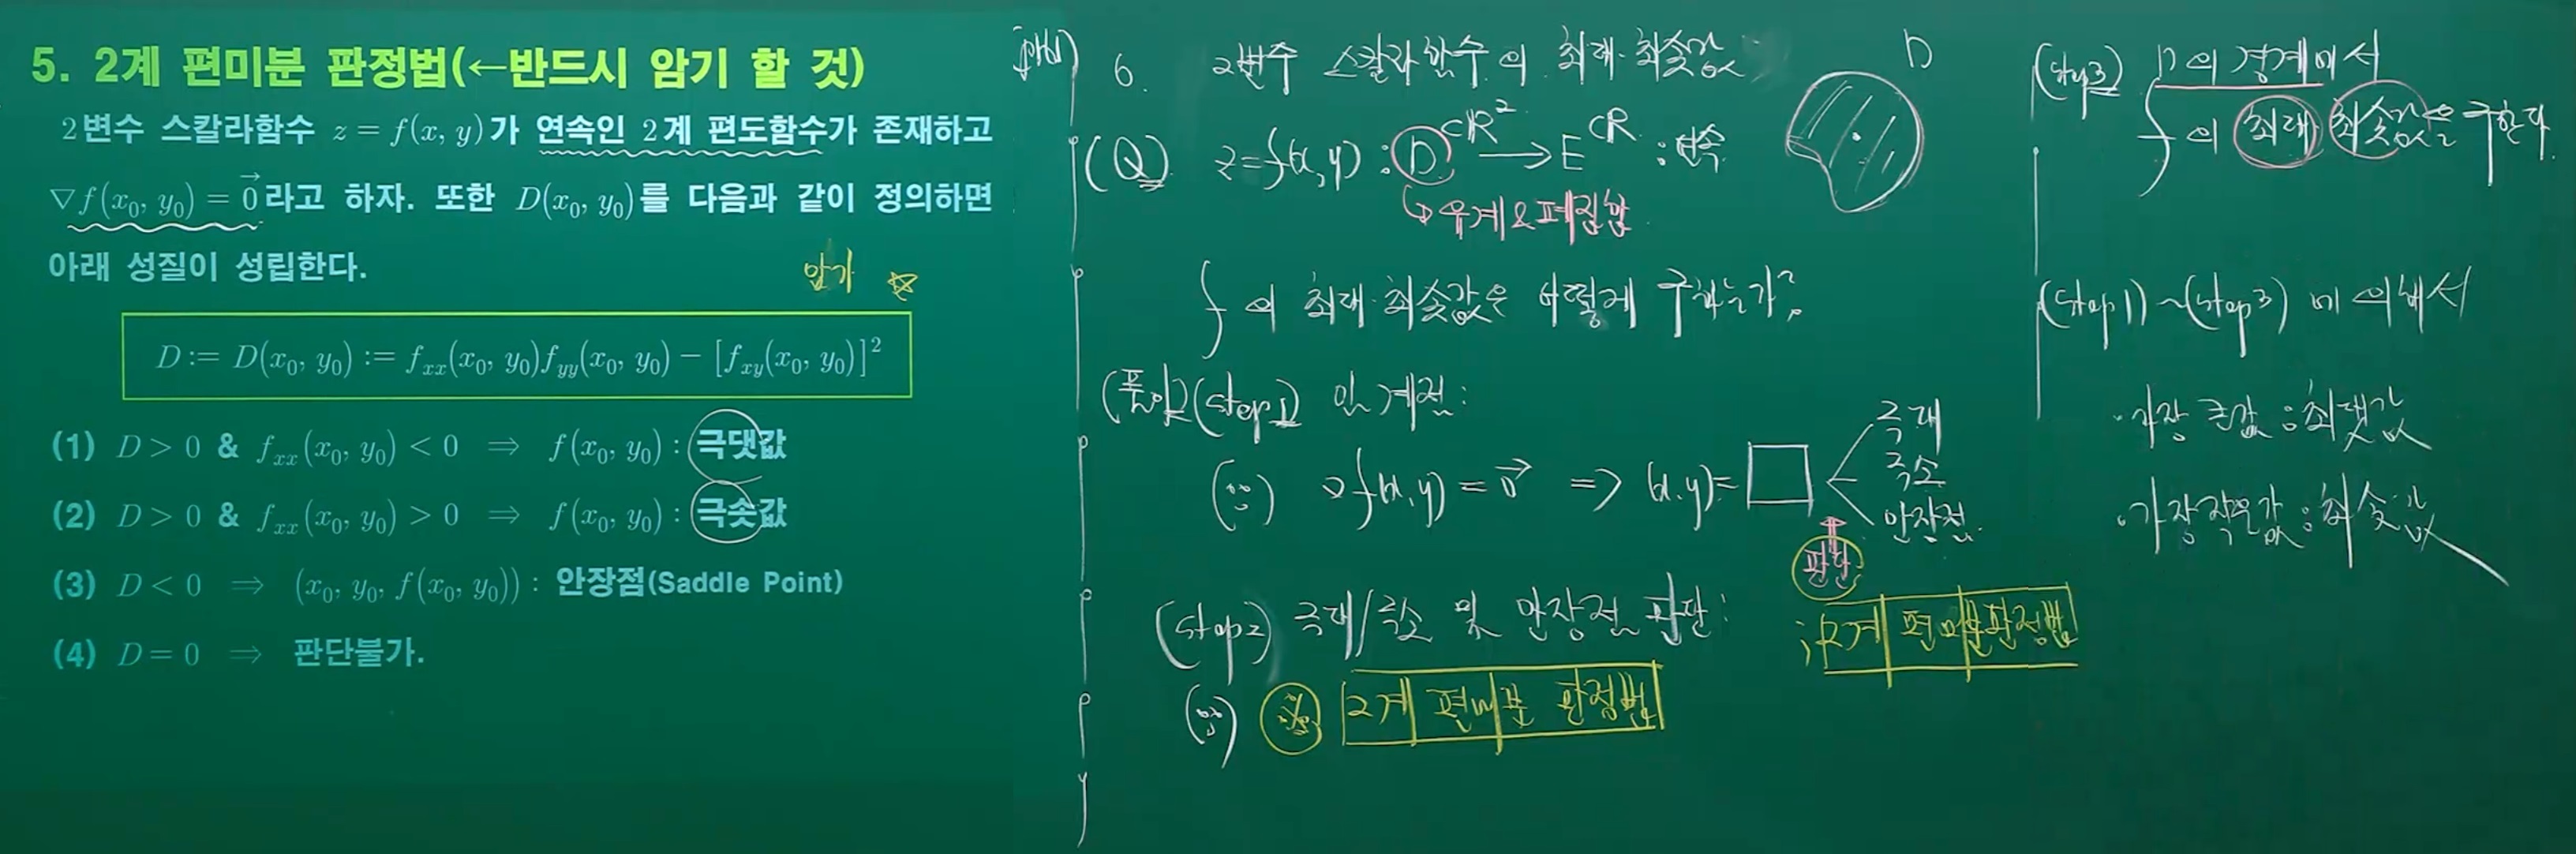 5. 2계 편미분 판정법(←반드시 암기 할 것)
2변수 스칼라함수 z = f(x, y)가 연속인 2계 편도함수가 존재하고
▽f(x₀, y₀) = 0⃗ 라고 하자. 또한 D(x₀, y₀)를 다음과 같이 정의하면
아래 성질이 성립한다.
암기 ☆
D := D(x₀, y₀) := fₓₓ(x₀, y₀)f_yy(x₀, y₀) − [f_xy(x₀, y₀)]²
(1) D > 0 & fₓₓ(x₀, y₀) < 0 ⇒ f(x₀, y₀) : 극댓값
(2) D > 0 & fₓₓ(x₀, y₀) > 0 ⇒ f(x₀, y₀) : 극솟값
(3) D < 0 ⇒ (x₀, y₀, f(x₀, y₀)) : 안장점(Saddle Point)
(4) D = 0 ⇒ 판단불가.
6. 2변수 스칼라함수의 최대·최솟값
D
(Q) z=f(x,y) : D ⊂ℝ² → E ⊂ℝ : 연속
↳ 유계&폐집합
f의 최대·최솟값은 어떻게 구하는가?
(풀이) (Step1) 임계점:
(∵) ▽f(x,y) = 0⃗ ⇒ (x,y)= □
극대
극소
안장점.
판단
; 2계 편미분판정법
(Step2) 극대/극소 및 안장점 판단:
(∵) ※ 2계 편미분 판정법
(Step3) D의 경계에서
f의 최대 최솟값을 구한다.
(Step1)~(Step3)에 의해서
·가장 큰값 : 최댓값
·가장 작은값 : 최솟값